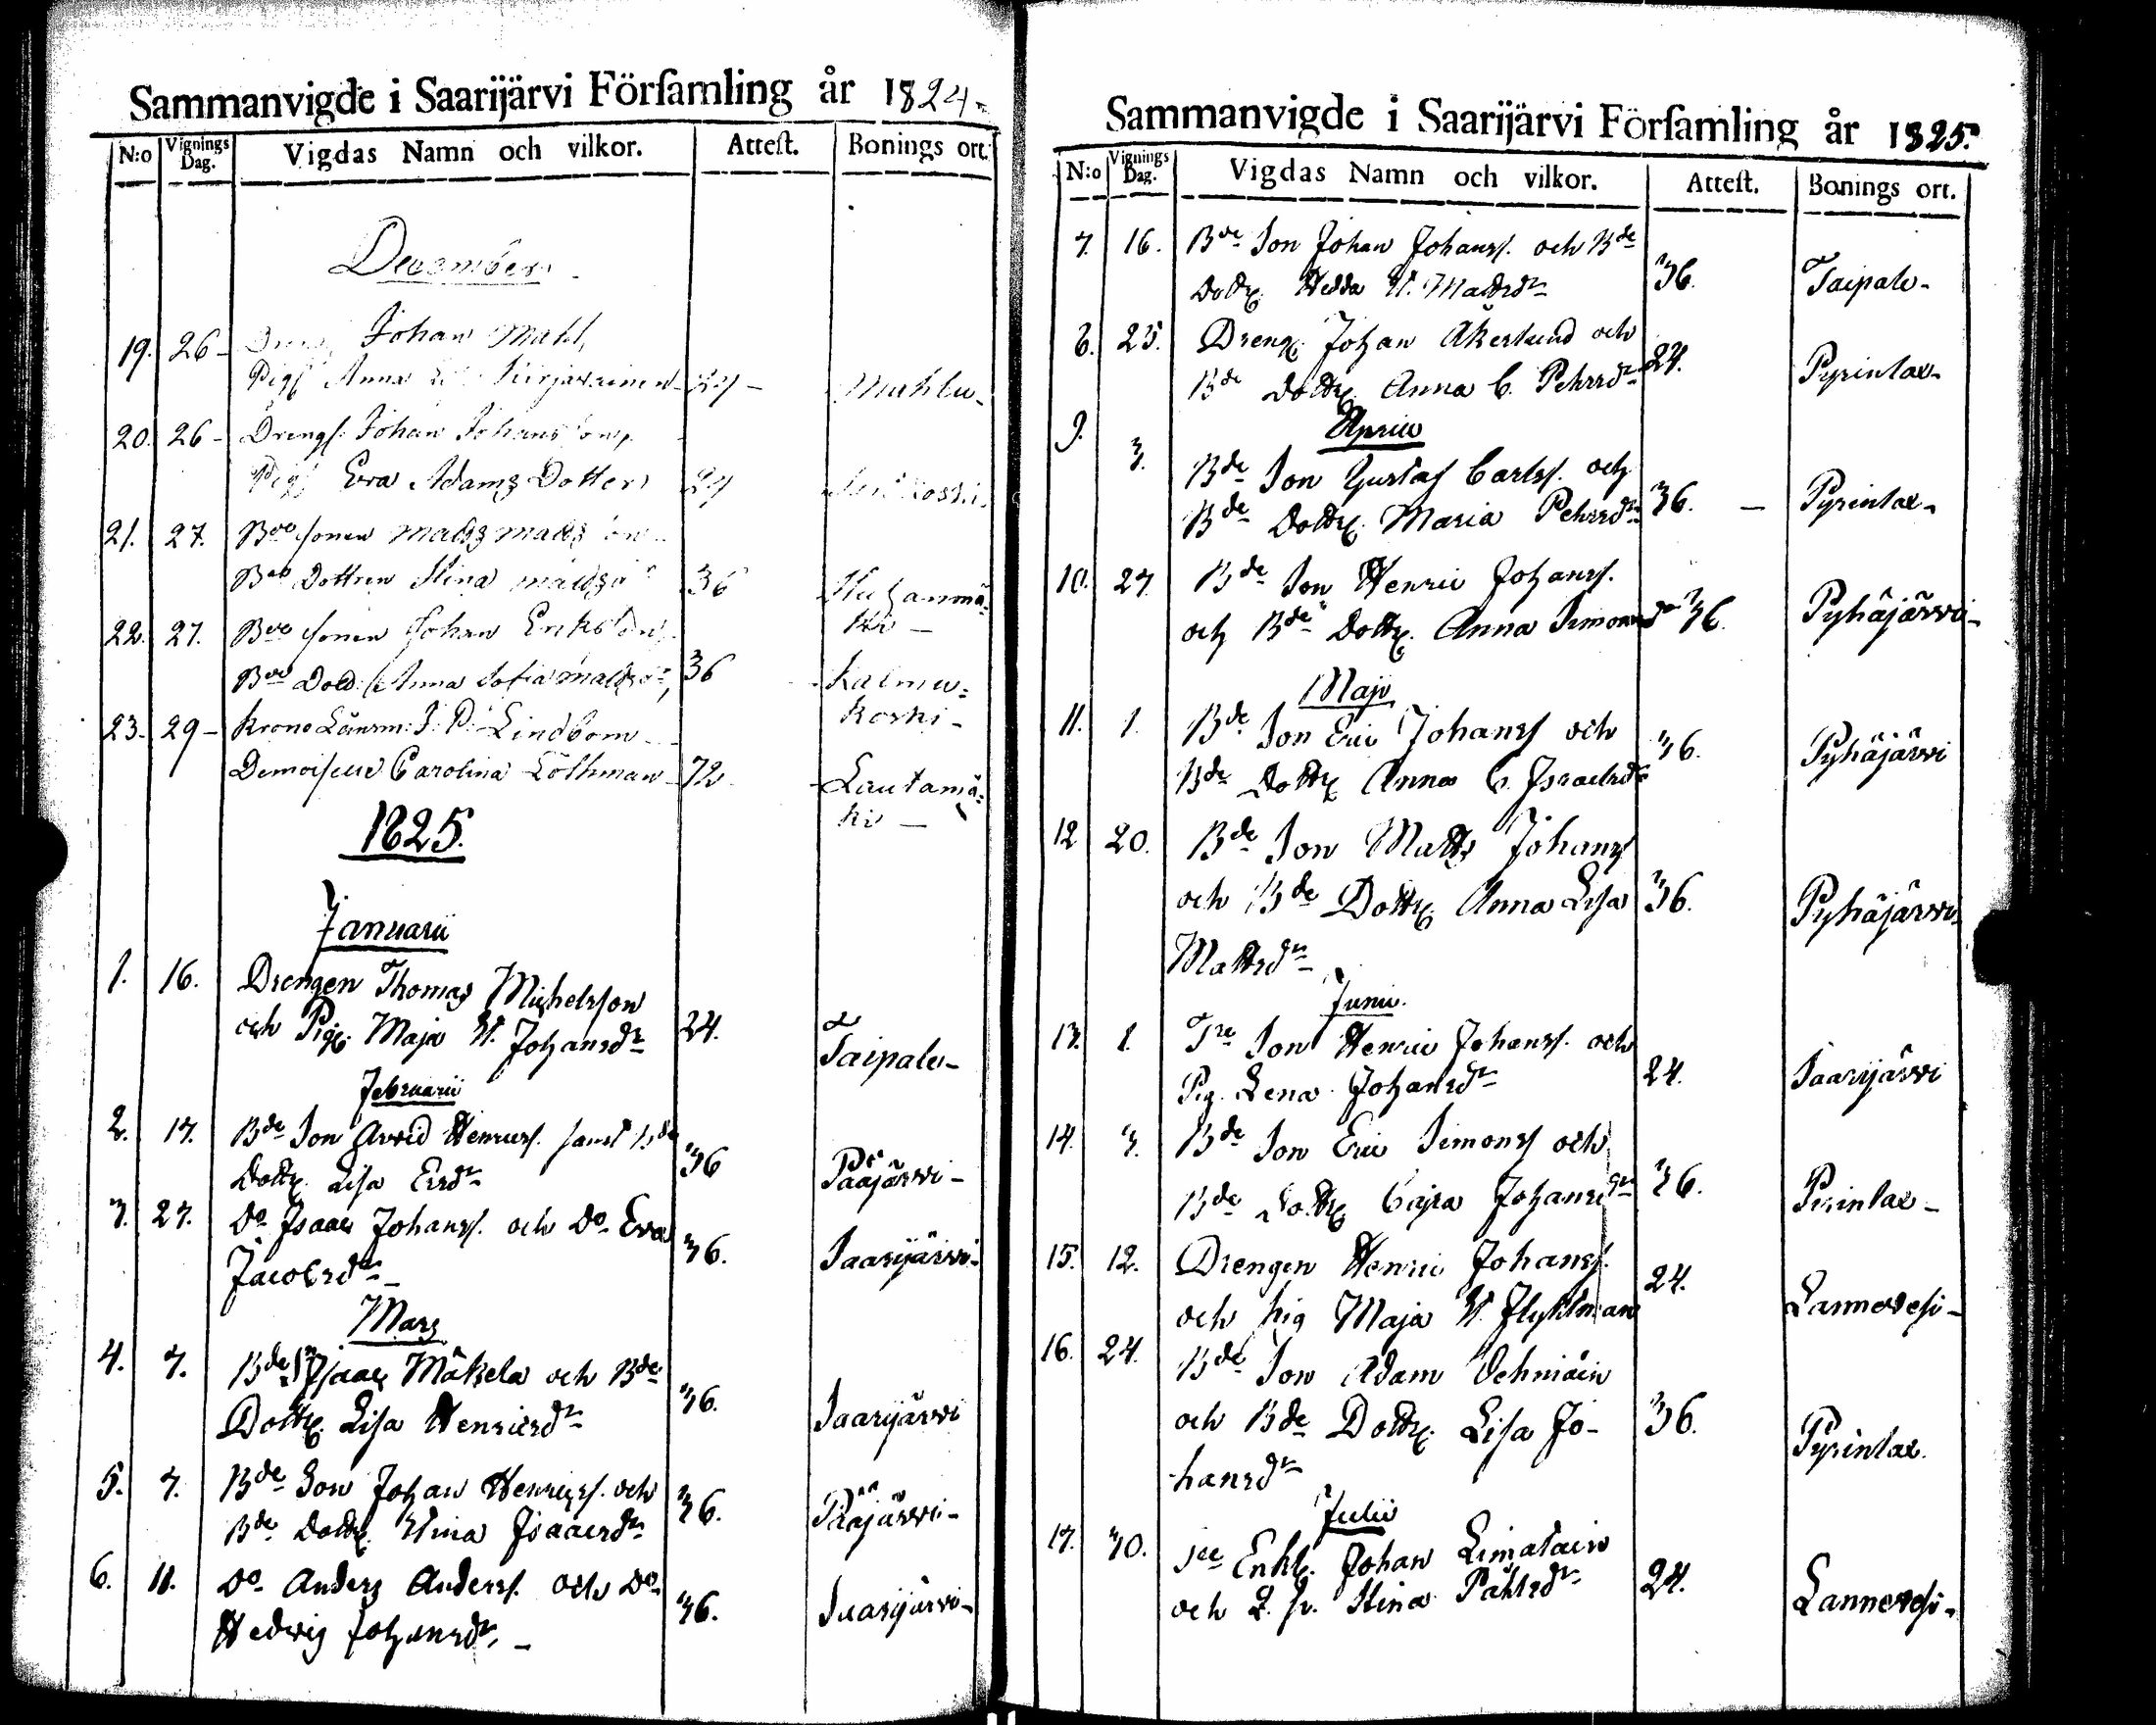 Sammanvigde i Saarijärvi Förſamling år 1824
N:o Vignings Dag. Vigdas Namn och vilkor. Atteſt. Bonings ort.
December
19. 26 Johan Mahl
Pig Anna 24 Mahlu
20. 26 Drengſ. Johan Johansson
Pig Eva Adams Dotter 24
21. 27. Bde sonen Matts Matts
Bde Dottren Stina Mattsd 36
22. 27. Bde sonen Johan Erikson
Bde Anna Sofia Mattsdr 36 Kalmu=
koski
23. 29 Krono Länsm: J. P. Lindbom
Demoiselle Carolina Löthman 72 Lautamä=
ki
1825.
Januarii
1. 16. Drengen Thomas Michelsson
och Pig. Maja St. Johansdr 24. Taipale
Februarii
2. 13. Bde Son Arvid Henrics. samt Bde
Dottr. Lisa Ersdr 36 Pääjärvi
3. 27. Do Isaac Johanss. och Do Eva
Jacobsdr 36. Saarijärvi
Mars
4. 3. Bde Isaac Mäkelä och Bde
Dottr. Lisa Henricsdr 36. Saarijärvi
5. 3. Bde Son Johan Henricss. och
Bde Dottr. Stina Isaacsdr 36. Pääjärvi
6. 11. Do Anders Anderss. och Do
Hedvig Johansdr 36. Saarijärvi
Sammanvigde i Saarijärvi Förſamling år 1825.
N:o Vignings Dag. Vigdas Namn och vilkor. Atteſt. Bonings ort.
7. 16. Bde Son Johan Johanss. och Bde
Dottr. Hedda St. Mattsdr 36. Taipale
8. 25. Dreng. Johan Åkerlund och
Bde Dottr. Anna C. Pehrsdr 24. Pyrintax
Aprill
9. 3. Bde Son Gustaf Carlss. och
Bde Dottr. Maria Pehrsdr 36. Pyrintax
10. 27. Bde Son Henric Johanss.
och Bde Dottr. Anna Simonsdr 36. Pyhäjärvi
Maji
11. 1. Bde Son Eric Johanss och
Bde Dottr Anna C. Israelsdr 36. Pyhäjärvi
12 20. Bde Son Matts Johanss
och Bde Dottr. Anna Lisa 36. Pyhäjärvi
Mattsdr
Junii.
13. 1. Tre Son Henric Johanss. och
Pig. Lena Johansdr 24. Saarijärvi
14. 3. Bde Son Eric Simonss och
Bde Dottr Cajsa Johansdr 36. Pirintax
15. 12. Drengen Henric Johanss.
och pig Maja St. Flyktman 24. Lannevesi
16. 24. Bde Son Adam Vehniäin
och Bde Dottr. Lisa Jo- 36. Pyrintax.
hansdr
Julii
17. 30. Enkl. Johan Limatain
och Stina Påhlsdr 24. Lannevesi